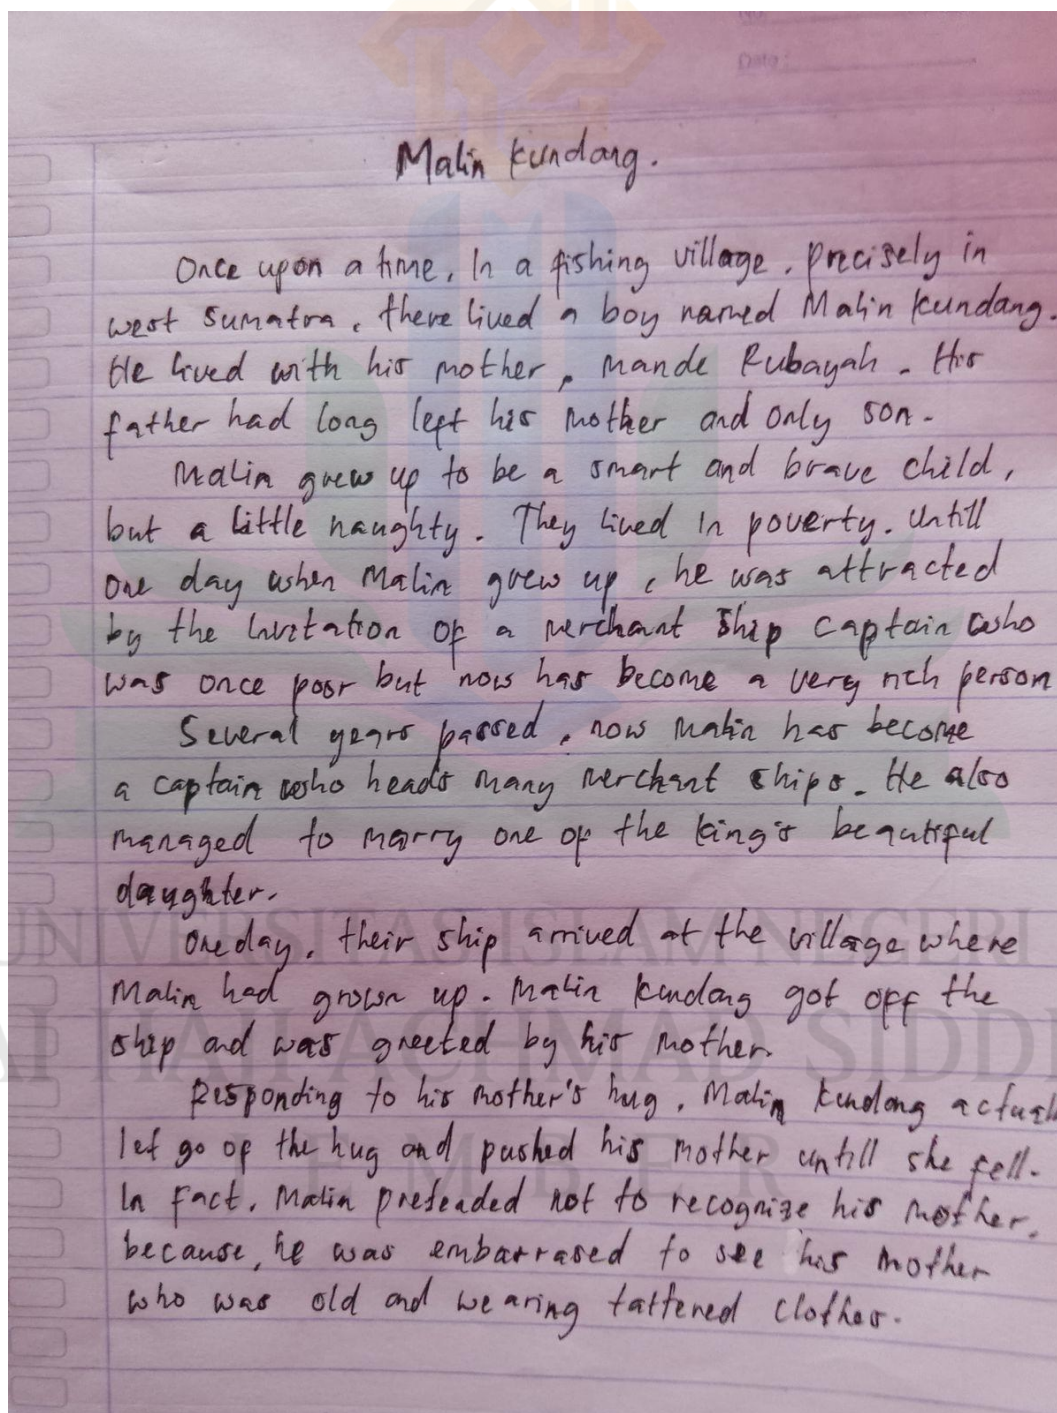 No:
Date :
Malin Kundang.
Once upon a time, In a fishing village, precisely in
west Sumatra, there lived a boy named Malin Kundang.
He lived with his mother, Mande Rubayah. His
father had long left his mother and only son.
Malin grew up to be a smart and brave child,
but a little naughty. They lived in poverty. Untill
one day when Malin grew up, he was attracted
by the Invitation of a merchant ship captain who
was once poor but now has become a very rich person
Several years passed, now Malin has become
a captain who heads many merchant ships. He also
managed to marry one of the king's beautiful
daughter.
One day, their ship arrived at the village where
Malin had grown up. Malin Kundang got off the
ship and was greeted by his mother.
Responding to his mother's hug, Malin Kundang actuall
let go of the hug and pushed his mother untill she fell.
In fact, Malin preteaded not to recognize his mother,
because, he was embarrased to see his mother
who was old and wearing tattered clothes.
UNIVERSITAS ISLAM NEGERI
AI HAJI ACHMAD SIDDI
JEMBER